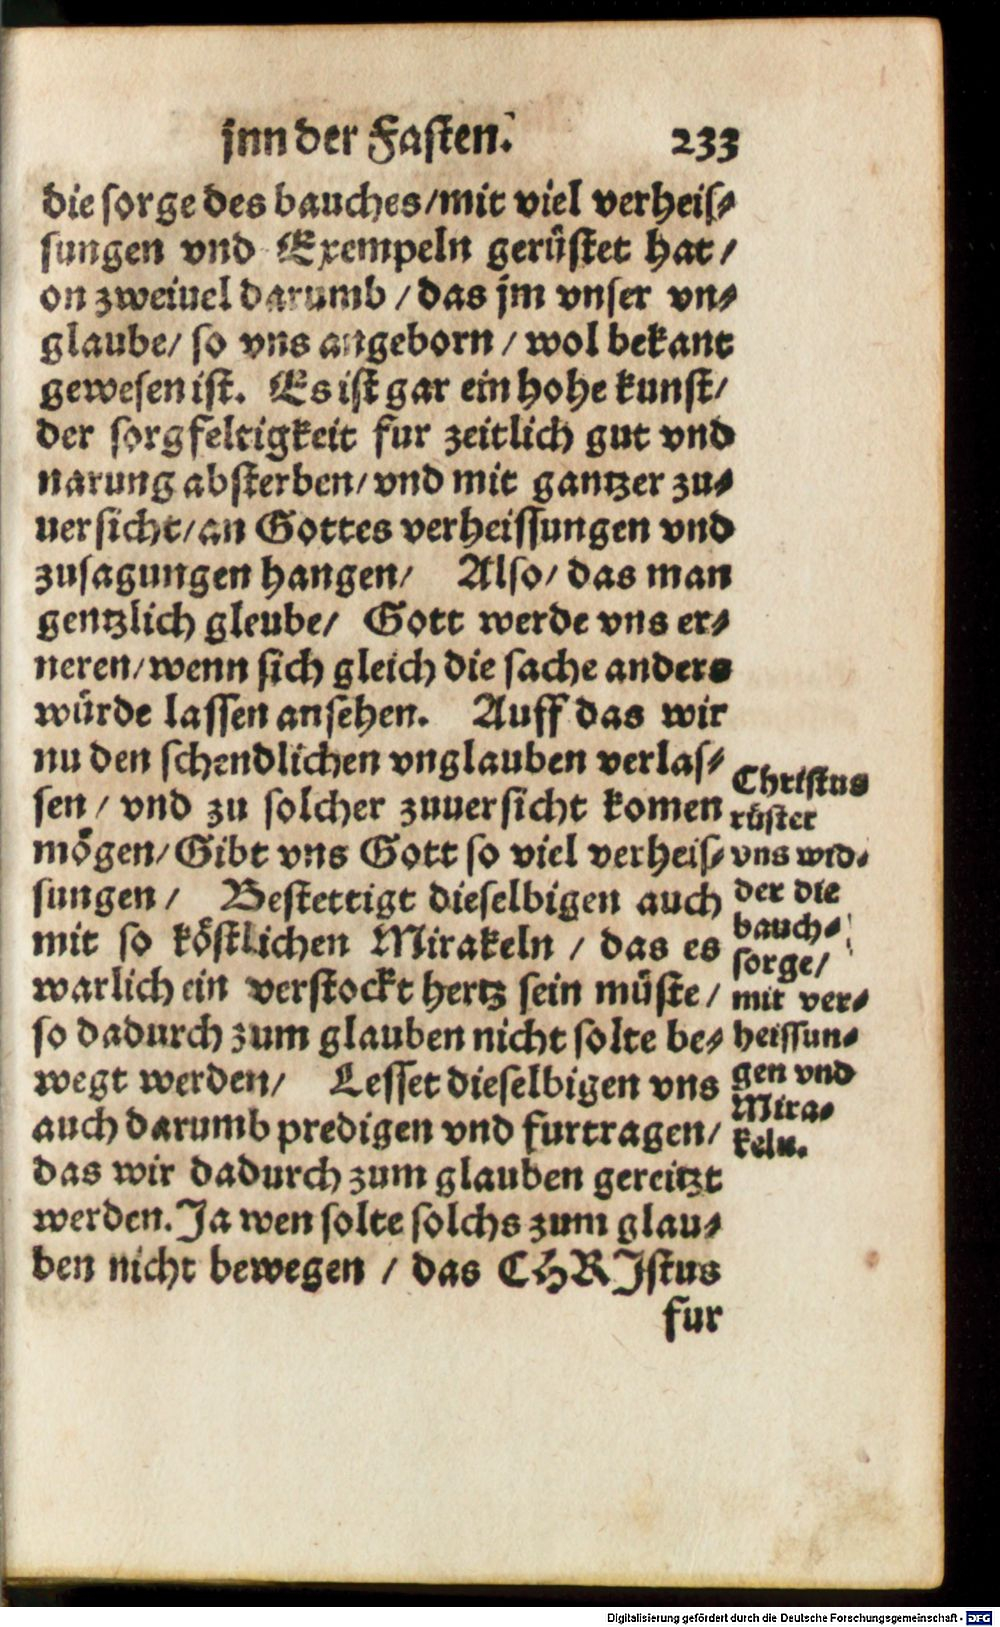 jnn der Fasten. 233
die sorge des bauches/mit viel verheis⸗
sungen vnd Exempeln gerüstet hat/
on zweiuel darumb/das jm vnser vn⸗
glaube/ so vns angeborn/ wol bekant
gewesen ist. Es ist gar ein hohe kunst/
der sorgfeltigkeit fur zeitlich gut vnd
narung absterben/vnd mit gantzer zu⸗
uersicht/an Gottes verheissungen vnd
zusagungen hangen/ Also/ das man
gentzlich gleube/ Gott werde vns er⸗
neren/wenn sich gleich die sache anders
würde lassen ansehen. Auff das wir
nu den schendlichen vnglauben verlas⸗
sen/ vnd zu solcher zuuersicht komen
mögen/Gibt vns Gott so viel verheis⸗
sungen/ Bestettigt dieselbigen auch
mit so köstlichen Mirakeln/ das es
warlich ein verstockt hertz sein müste/
so dadurch zum glauben nicht solte be⸗
wegt werden/ Lesset dieselbigen vns
auch darumb predigen vnd furtragen/
das wir dadurch zum glauben gereitzt
werden. Ja wen solte solchs zum glau⸗
ben nicht bewegen/ das CHRIstus
fur
Christus
rüstet
vns wid⸗
der die
bauch⸗
sorge/
mit ver⸗
heissun⸗
gen vnd
Mira⸗
keln.
Digitalisierung gefördert durch die Deutsche Forschungsgemeinschaft - DFG